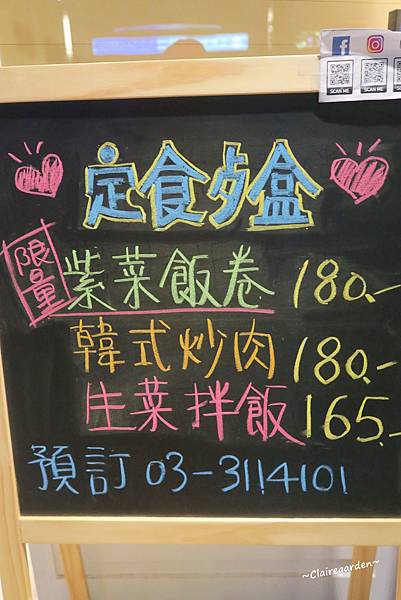 SCAN ME SCAN ME SCAN ME
定食歺盒
限量
紫菜飯卷 180.-
韓式炒肉 180.-
生菜拌飯 165.-
預訂 03-3114101
~Clairegarden~